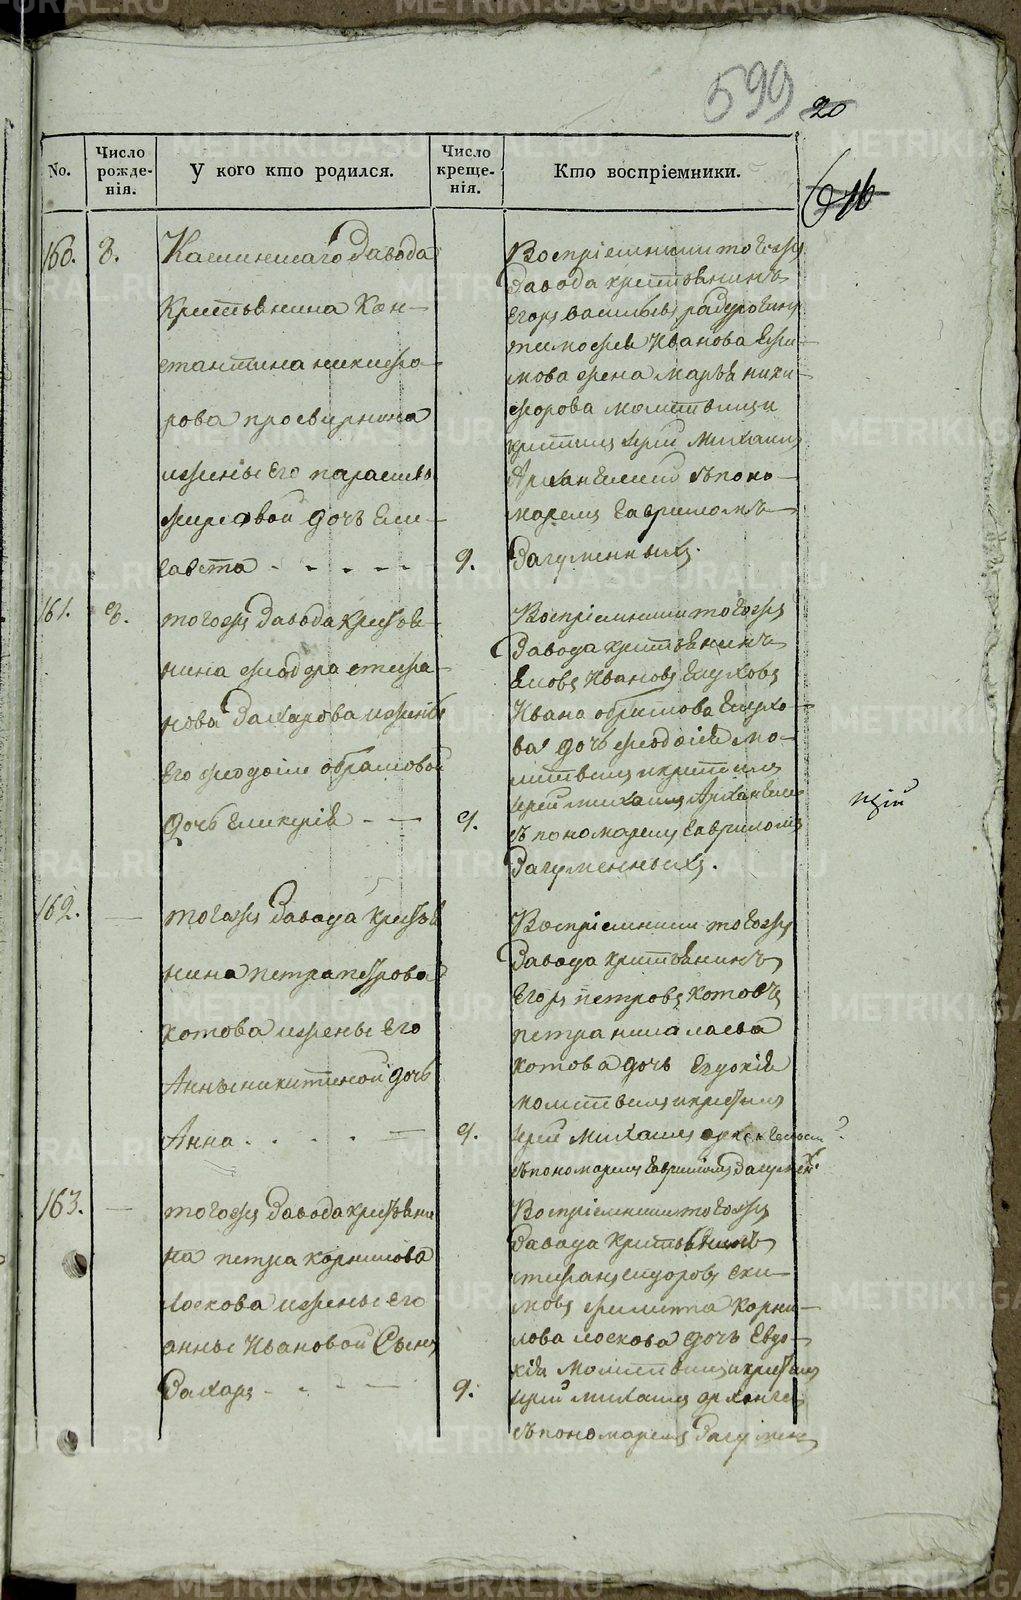 599 20
616
No.
Число рожде-нія.
У кого кто родился.
Число креще-нія.
Кто воспріемники.
160. 8.
Каслинскаго Завода
Крестьянина Кон-
стантина никифо-
рова просвирнина
и жены Его парасковьи
дочь Ели-
савета - - - - - 9.
Воспріемники тогожъ
Завода крестьянинъ
Егоръ васильевъ
тимофея Иванова Ефи-
мова жена марья ники-
форова молитвилъ и
крестилъ Іерей Михаилъ
Архангельскій съ поно-
маремъ Гавриломъ
Загуменныхъ.
161. 8.
тогожъ Завода крестья-
нина феодора стефа-
нова Захарова и жены
Его феодосіи абрамовой
дочь Гликерія - - 9.
Воспріемники тогожъ
Завода крестьянинъ
Глуховъ
Ивана абрамова Глухо-
ва дочь феодосія мо-
литвилъ и крестилъ
Іерей михаилъ Архангель
съ пономаремъ Гавриломъ
Загуменныхъ.
скій
162. —
тогожъ Завода крестья
нина петра петрова
котова и жены Его
Анны никитиной дочь
Анна. . . . . — 9.
Воспріемники тогожъ
Завода крестьянинъ
Егоръ петровъ котовъ
петра николаева
котова дочь Евдокія
молитвилъ и крестилъ
Іерей михаилъ архангельск
съ пономаремъ Гавриломъ Загумен
163. —
тогожъ Завода крестьяни
на петра корнилова
лоскова и жены Его
анны Ивановой Сынъ
Захаръ - - - — 9.
Воспріемники тогожъ
Завода Крестьянинъ
стефанъ сидоровъ
филиппа корни-
лова лоскова дочь Евдо-
кія молитвилъ и крестилъ
Іерей михаилъ арханге
съ пономаремъ Загумен
METRIKI.GASO-URAL.RU